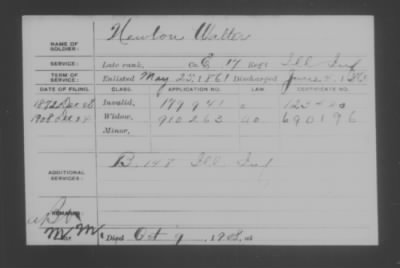 NAME OF SOLDIER: Newlon Walter
SERVICE: Late rank, Co. E, 17 Reg't Ill Inf
TERM OF SERVICE: Enlisted May 25, 1861 Discharged June 4, 18
DATE OF FILING. CLASS. APPLICATION NO. LAW. CERTIFICATE NO.
Invalid, 179941
1908 Widow, 910263 690196
Minor,
ADDITIONAL SERVICES: B. 148 Ill Inf
REMARKS:
Died Oct 9, 1908, at